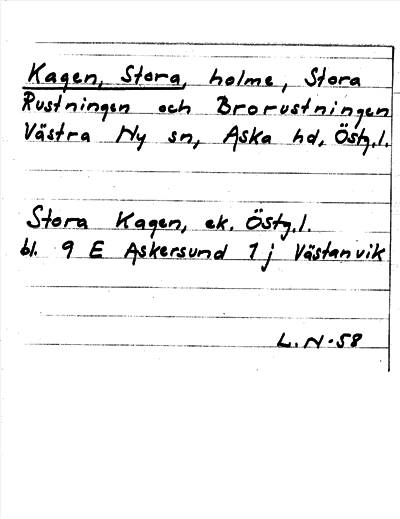 Kagen, Stora, holme, Stora
Rustningen och Brorustningen
Västra Ny sn, Aska hd, Östg.l.
Stora Kagen, ek. Östg.l.
bl. 9 E Askersund 1 j Västanvik
L.N-58